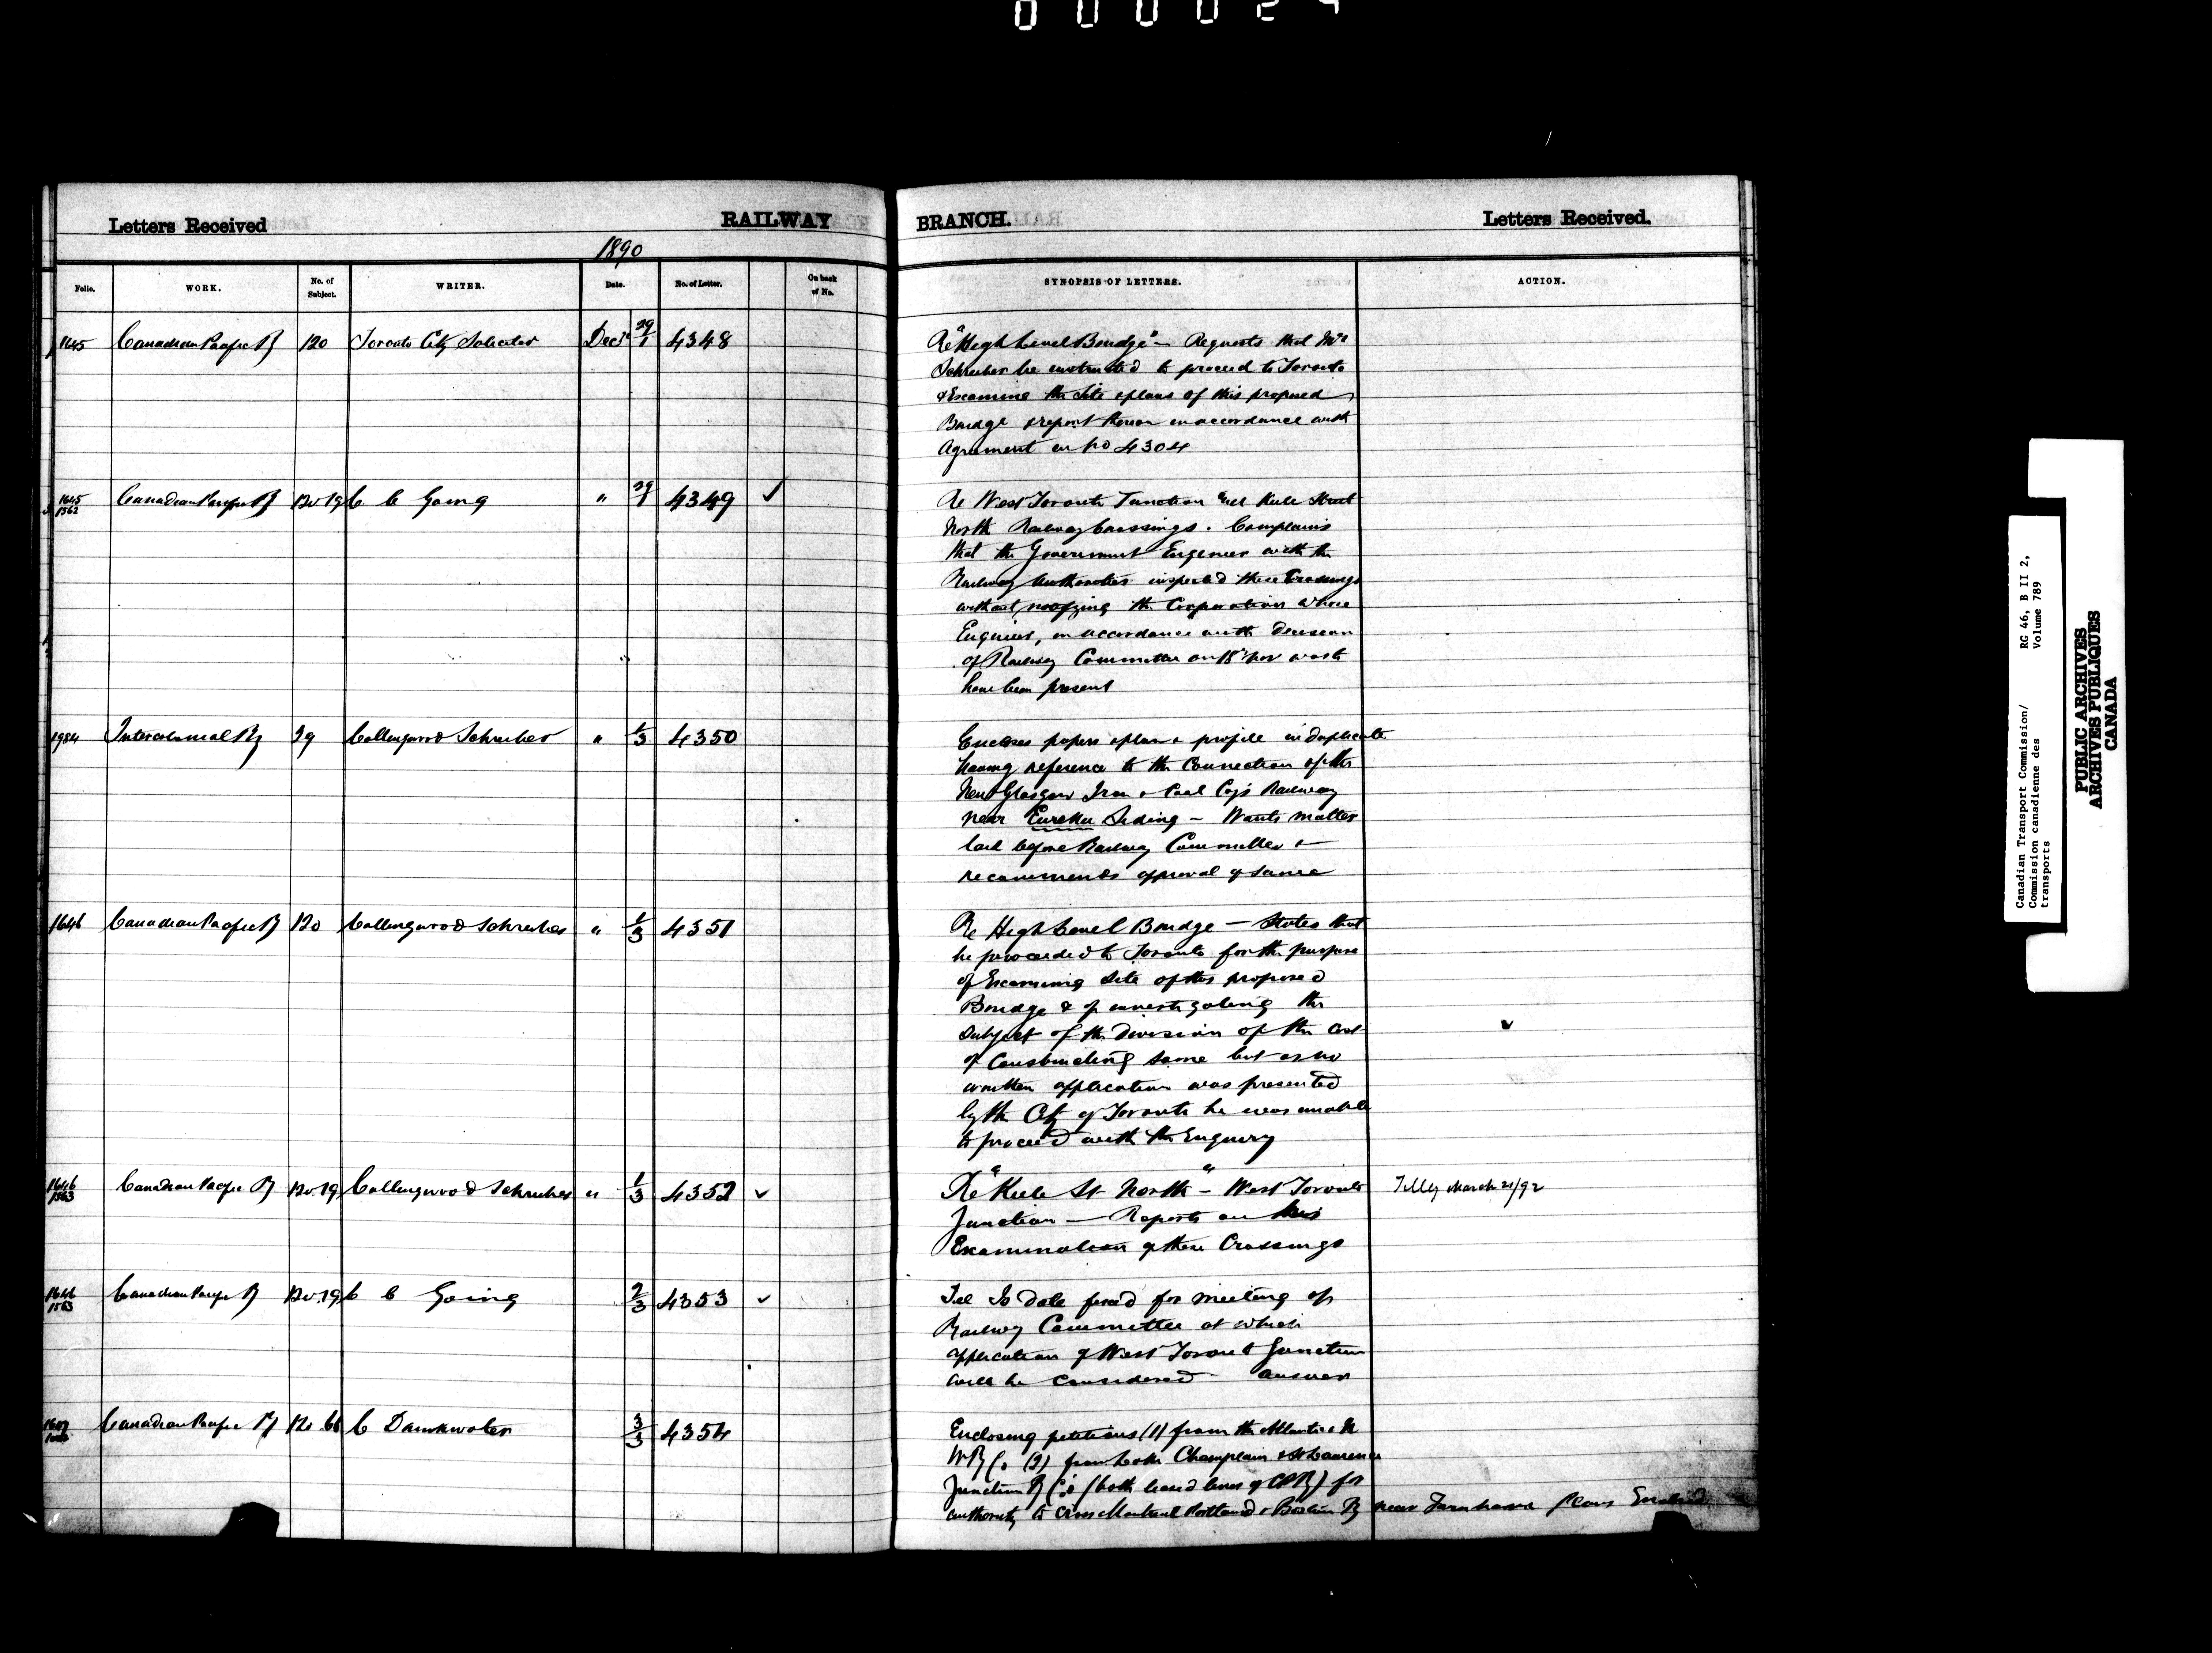 000024
Letters Received
RAILWAY
BRANCH.
Letters Received.
1890
Folio.
WORK.
No. of Subject.
WRITER.
Date.
No. of Letter.
On back of No.
SYNOPSIS OF LETTERS.
ACTION.
1645 Canadian Pacific Ry 120 Toronto City Solicitor Decr 29/1 4348
Re "High Level Bridge" - Requests that Mr
Schreiber be instructed to proceed to Toronto
& Examine the site & plans of this proposed
Bridge & report thereon in accordance with
Agreement on No 4304
1645
1562 Canadian Pacific Ry 120.19 C C Going " 29/1 4349 ✓
Re West Toronto Junction and Keele Street
North Railway Crossings. Complains
that the Government Engineer with the
Railway Authorities inspected these Crossings
without notifying the Corporation whose
Engineer, in accordance with decision
of Railway Committee on 18th Nov was to
have been present
1984 Intercolonial Ry 29 Collingwood Schreiber " 1/3 4350
Encloses papers & plan & profile in duplicate
having reference to the Connection of the
New Glasgow Iron & Coal Coy's Railway
near Eureka Siding - Wants matter
laid before Railway Committee &
recommends approval of same
1646 Canadian Pacific Ry 120 Collingwood Schreiber " 1/3 4351
Re High Level Bridge - States that
he proceeded to Toronto for the purpose
of Examining site of this proposed
Bridge & of investigating the
subject of the division of the cost
of Constructing same but as no
written application was presented
by the City of Toronto he was unable
to proceed with the Enquiry
✓
1646
1563 Canadian Pacific Ry 120.19 Collingwood Schreiber " 1/3 4352 ✓
Re "Keele St North" - West Toronto
Junction - Reports on his
Examination of these Crossings
March 21/92
1646
1563 Canadian Pacific Ry 120.19 C C Going 2/3 4353 ✓
Tel Is date fixed for meeting of
Railway Committee at which
application of West Toronto Junction
will be considered - answer
Canadian Pacific Ry 120.66 C Drinkwater 3/3 4354
Enclosing petitions (1) from the Atlantic & N
W Ry Co (2) from Lake Champlain & St Lawrence
Junction Ry Co (both leased lines of CPR) for
authority to cross Montreal Portland & Boston Ry near Farnham plans Enclosed
Canadian Transport Commission/
Commission canadienne des
transports
RG 46, B II 2,
Volume 789
PUBLIC ARCHIVES
ARCHIVES PUBLIQUES
CANADA